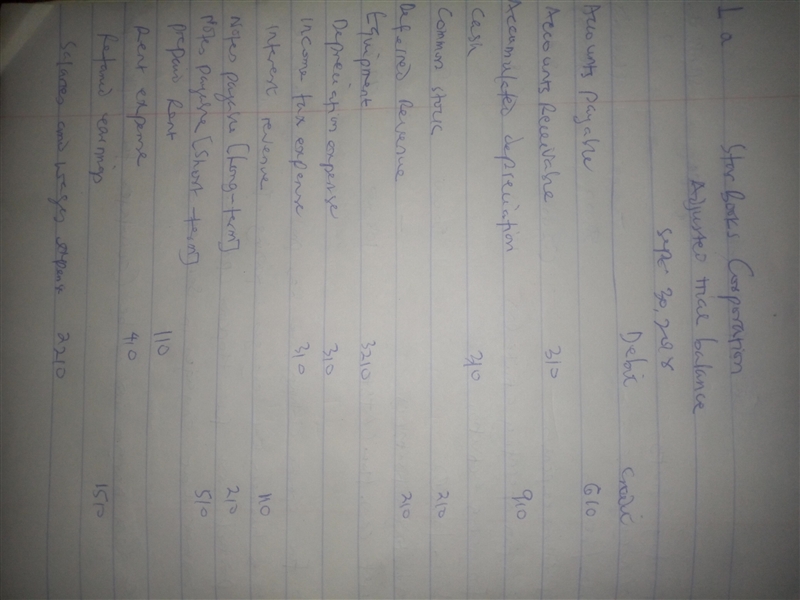 1 a Starbooks Corporation
Adjusted trial balance
Sept 30, 2018
Debit Credit
Accounts Payable 610
Accounts Receivable 310
Accumulated depreciation 910
Cash 310
Common stock 210
Deferred Revenue 210
Equipment 3210
Depreciation expense 310
Income tax expense 310
Interest revenue 110
Notes payable [Long-term] 210
Notes payable [Short-term] 510
Prepaid Rent 110
Rent expense 410
Retained earnings 1510
Salaries and wages expense 2210